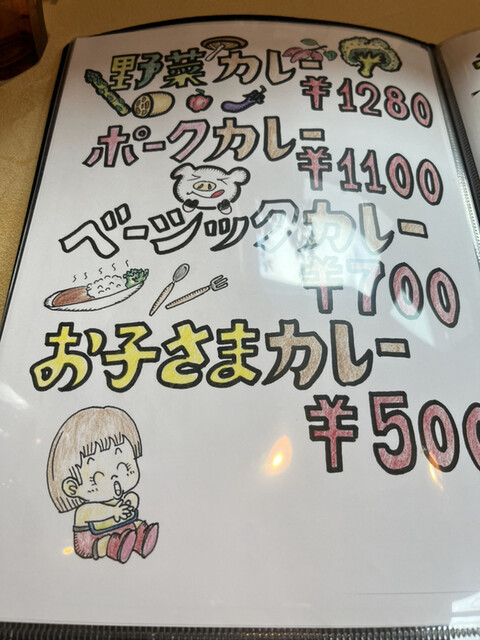 野菜カレー
¥1280
ポークカレー
¥1100
ベーシックカレー
¥700
お子さまカレー
¥500